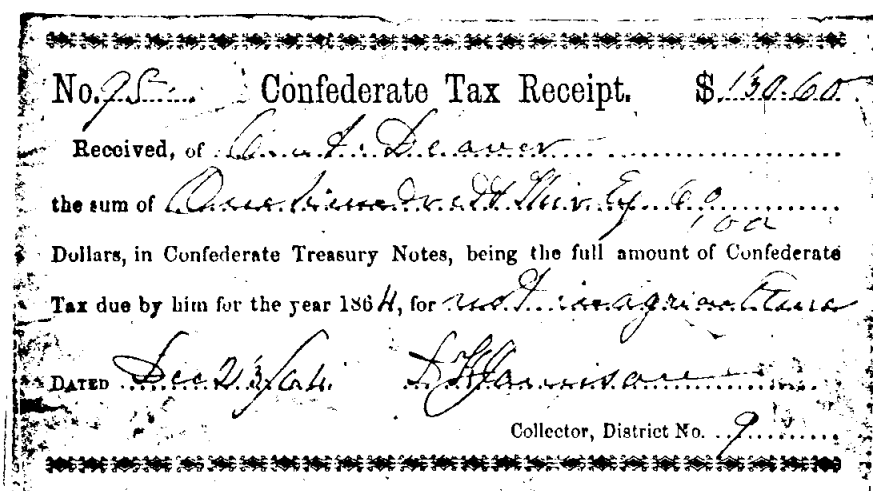 No. 95 Confederate Tax Receipt. $ 130.60
Received, of Deaver
the sum of One hundredd Thirty 60/100
Dollars, in Confederate Treasury Notes, being the full amount of Confederate
Tax due by him for the year 1864, for not in agriculture
DATED Dec 23/64. Garrison
Collector, District No. 9